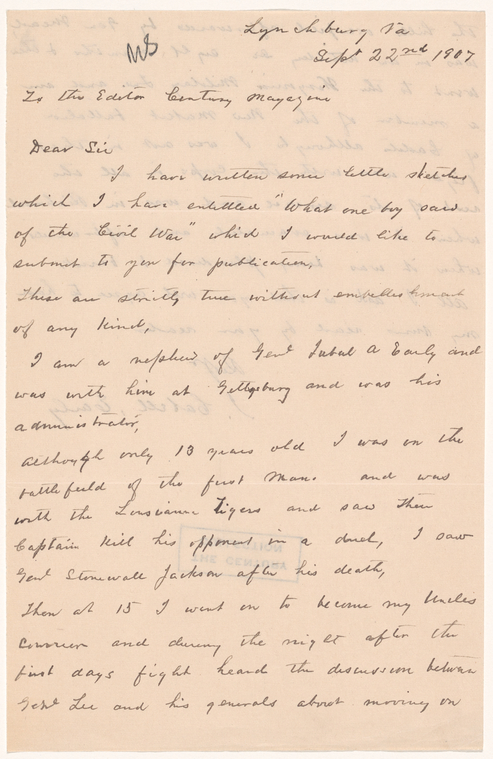 Lynchburg Va
MS
Sept 22nd 1907
To the Editor Century Magazine
Dear Sir
I have written some little sketches
which I have entitled "What one boy saw
of the Civil War" which I would like to
submit to you for publication,
These are strictly true without embellishment
of any kind,
I am a nephew of Genl Jubal A Early and
was with him at Gettysburg and was his
administrator,
Although only 13 years old I was on the
battlefield of the first Mans. and was
with the Lousiana Tigers and saw their
Captain kill his opponent in a duel, I saw
Genl Stonewall Jackson after his death,
Then at 15 I went on to become my Uncles
courier and during the night after the
first days fight heard the discussion between
Genl Lee and his generals about moving on